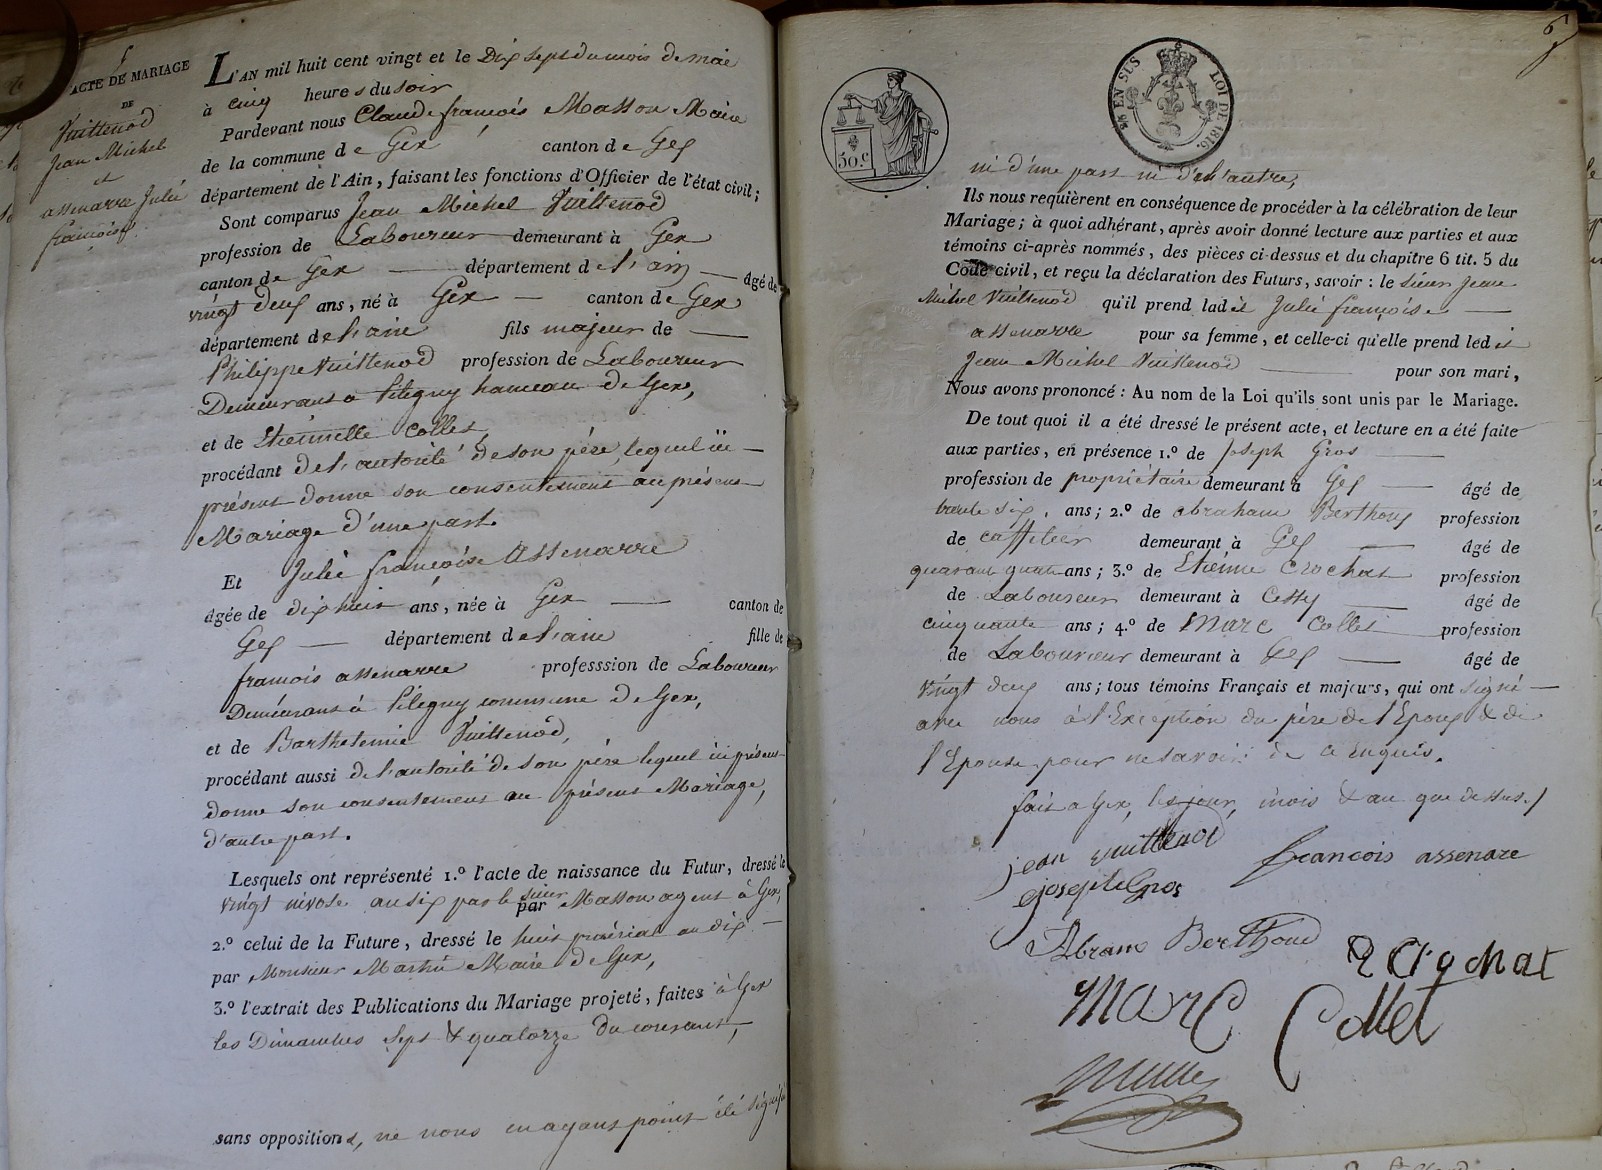 ACTE DE MARIAGE
DE
Vuittenod
Jean Michel
et
assenarre Julié
francoise.
L'AN mil huit cent vingt et le Dix sept du mois de mai
à cinq heures du soir
Pardevant nous Claude françois Masson Maire
de la commune de Gex canton de Gex
département de l'Ain, faisant les fonctions d'Officier de l'état civil;
Sont comparus Jean Michel Vuittenod
profession de Laboureur demeurant à Gex
canton de Gex département de l'ain âgé de
vingt deux ans, né à Gex canton de Gex
département de l'ain fils majeur de
Philippe Vuittenod profession de Laboureur
Demeurant a Pitegny hameau de Gex,
et de Etiennette Collet
procédant de l'autorité de son père, lequel ici
présent donne son consentement au présent
Mariage d'une part.
Et Julié françoise Assenarre
âgée de dix huit ans, née à Gex canton de
Gex département de l'ain fille de
francois assenarre professsion de Laboureur
Demeurant à Pitegny commune de Gex,
et de Barthelemie Vuittenod,
procédant aussi de l'autorité de son père lequel ici présent
donne son consentement au présent Mariage,
d'autre part.
Lesquels ont représenté 1.º l'acte de naissance du Futur, dressé le
vingt nivose an six par le sieur par Masson agent à Gex,
2.º celui de la Future, dressé le huit prairial an dix
par Monsieur Martin Maire de Gex,
3.º l'extrait des Publications du Mariage projeté, faites à Gex
les Dimanches sept & quatorze du courant,
sans oppositions, ne nous en ayant point été signifié
6
50.c
EN SUS
LOI DE 1816.
ni d'une part ni d'autre,
Ils nous requièrent en conséquence de procéder à la célébration de leur
Mariage; à quoi adhérant, après avoir donné lecture aux parties et aux
témoins ci-après nommés, des pièces ci-dessus et du chapitre 6 tit. 5 du
Code civil, et reçu la déclaration des Futurs, savoir: le sieur Jean
Michel Vuittenod qu'il prend ladit Julié françoise
assenarre pour sa femme, et celle-ci qu'elle prend ledit
Jean Michel Vuittenod pour son mari,
Nous avons prononcé: Au nom de la Loi qu'ils sont unis par le Mariage.
De tout quoi il a été dressé le présent acte, et lecture en a été faite
aux parties, en présence 1.º de Joseph Gros
profession de propriétaire demeurant à Gex âgé de
trente six, ans; 2.º de abraham Berthoud profession
de caffetier demeurant à Gex âgé de
quarante quatre ans; 3.º de Etiénne Crochat profession
de Laboureur demeurant à Cessy âgé de
cinquante ans; 4.º de Marc Collet profession
de Laboureur demeurant à Gex âgé de
vingt deux ans; tous témoins Français et majeurs, qui ont signé
avec nous à l'Exception du père de l'Epoux & de
l'Epouse pour ne savoir de ce Enquis.
fait a Gex, les jour, mois & an que dessus./
jean vuittenod
francois assenare
joseph Gros
Abram Berthoud
E Crochat
Marc Collet